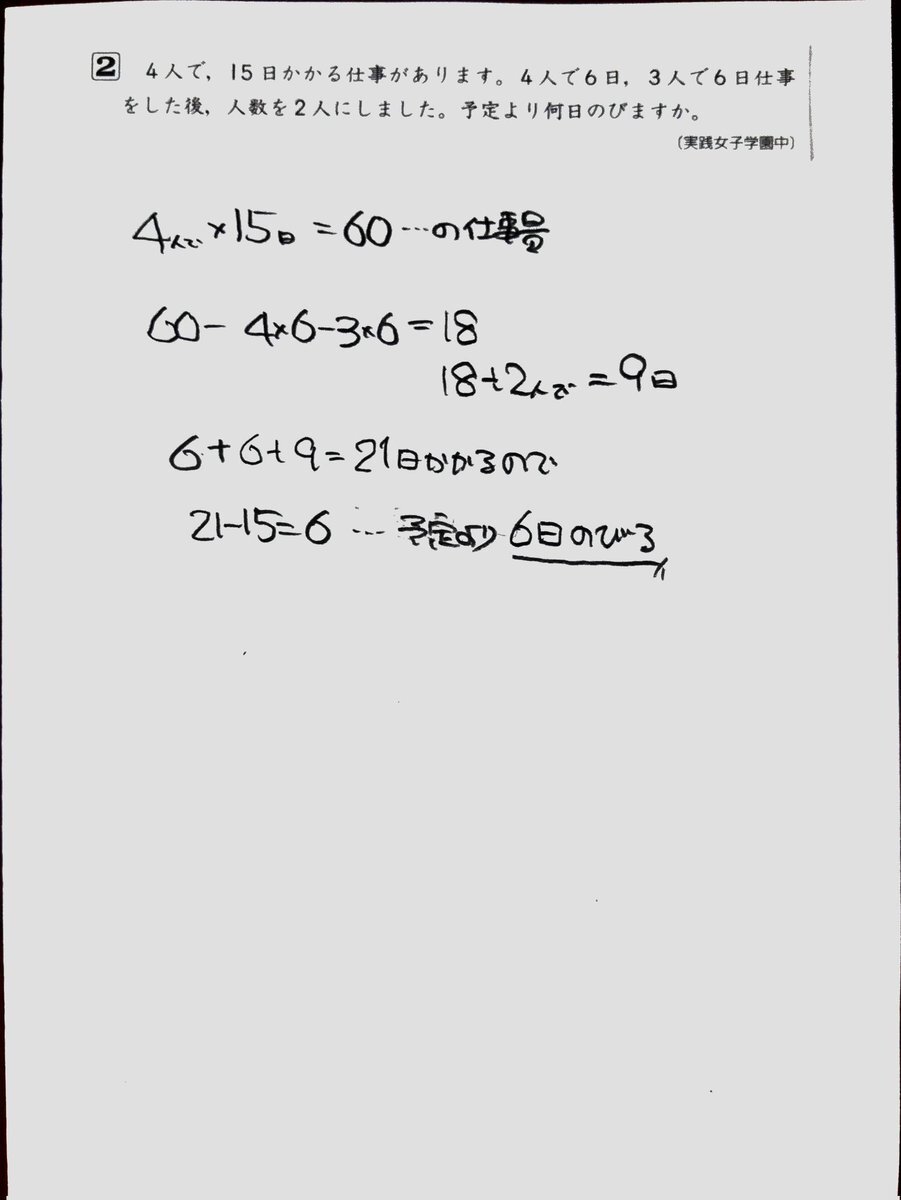 2 4人で，15日かかる仕事があります。4人で6日，3人で6日仕事
をした後，人数を2人にしました。予定より何日のびますか。
（実践女子学園中）
4人で×15日=60…の仕事量
60-4×6-3×6=18
18÷2人で=9日
6+6+9=21日かかるので
21-15=6 …予定より6日のびる